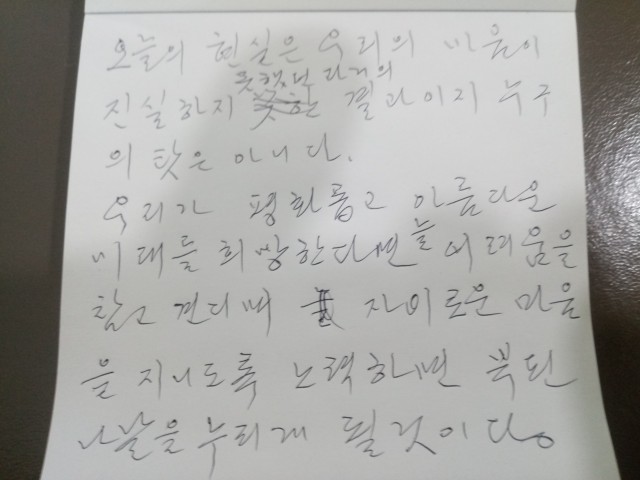 오늘의 현실은 우리의 마음이
못했던 과거의
진실하지 못한 결과이지 누구
의 탓은 아니다.
우리가 평화롭고 아름다운
미래를 희망한다면 늘 어려움을
참고 견디며 자비로운 마음
을 지니도록 노력하면 복된
나날을 누리게 될것이다.